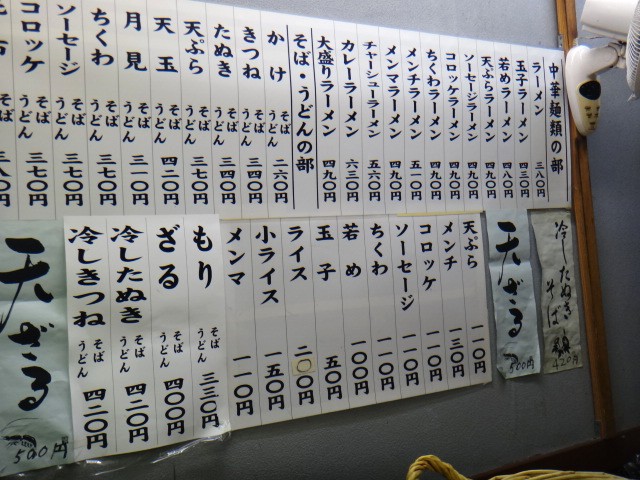 中華麺類の部
ラーメン 三八〇円
玉子ラーメン 四三〇円
若めラーメン 四八〇円
天ぷらラーメン 四九〇円
ソーセージラーメン 四九〇円
コロッケラーメン 四九〇円
ちくわラーメン 四九〇円
メンチラーメン 五一〇円
メンマラーメン 四九〇円
チャーシューラーメン 五六〇円
カレーラーメン 六三〇円
大盛りラーメン 四九〇円
そば・うどんの部
かけ そば うどん 二六〇円
きつね そば うどん 三四〇円
たぬき そば うどん 三四〇円
天ぷら そば うどん 三七〇円
天玉 そば うどん 四二〇円
月見 そば うどん 三一〇円
ちくわ そば うどん 三七〇円
ソーセージ そば うどん 三七〇円
コロッケ そば うどん 三七〇円
そば うどん 三八〇円
冷したぬき そば 420円
天ざる 500円
天ぷら 一一〇円
メンチ 一三〇円
コロッケ 一一〇円
ソーセージ 一一〇円
ちくわ 一一〇円
若め 一〇〇円
玉子 五〇円
ライス 二〇〇円
小ライス 一五〇円
メンマ 一一〇円
もり そば うどん 三三〇円
ざる そば うどん 四〇〇円
冷したぬき そば うどん 四二〇円
冷しきつね そば うどん 四二〇円
天ざる 500円